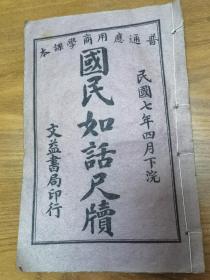 普通應用商學課本
民國七年四月下浣
國民如話尺牘
文益書局印行